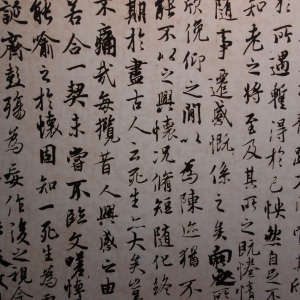 於所遇暫得於己怏然自足不
知老之將至及其所之既惓情
隨事遷感慨係之矣向之
欣俛仰之間以為陳迹猶不
能不以之興懷況脩短隨化終
期於盡古人云死生亦大矣豈
不痛哉每攬昔人興感之由
若合一契未嘗不臨文嗟悼
能喻之於懷固知一死生為
誕齊彭殤為妄作後之視今